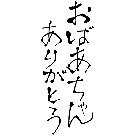 おばあちゃん
ありがとう